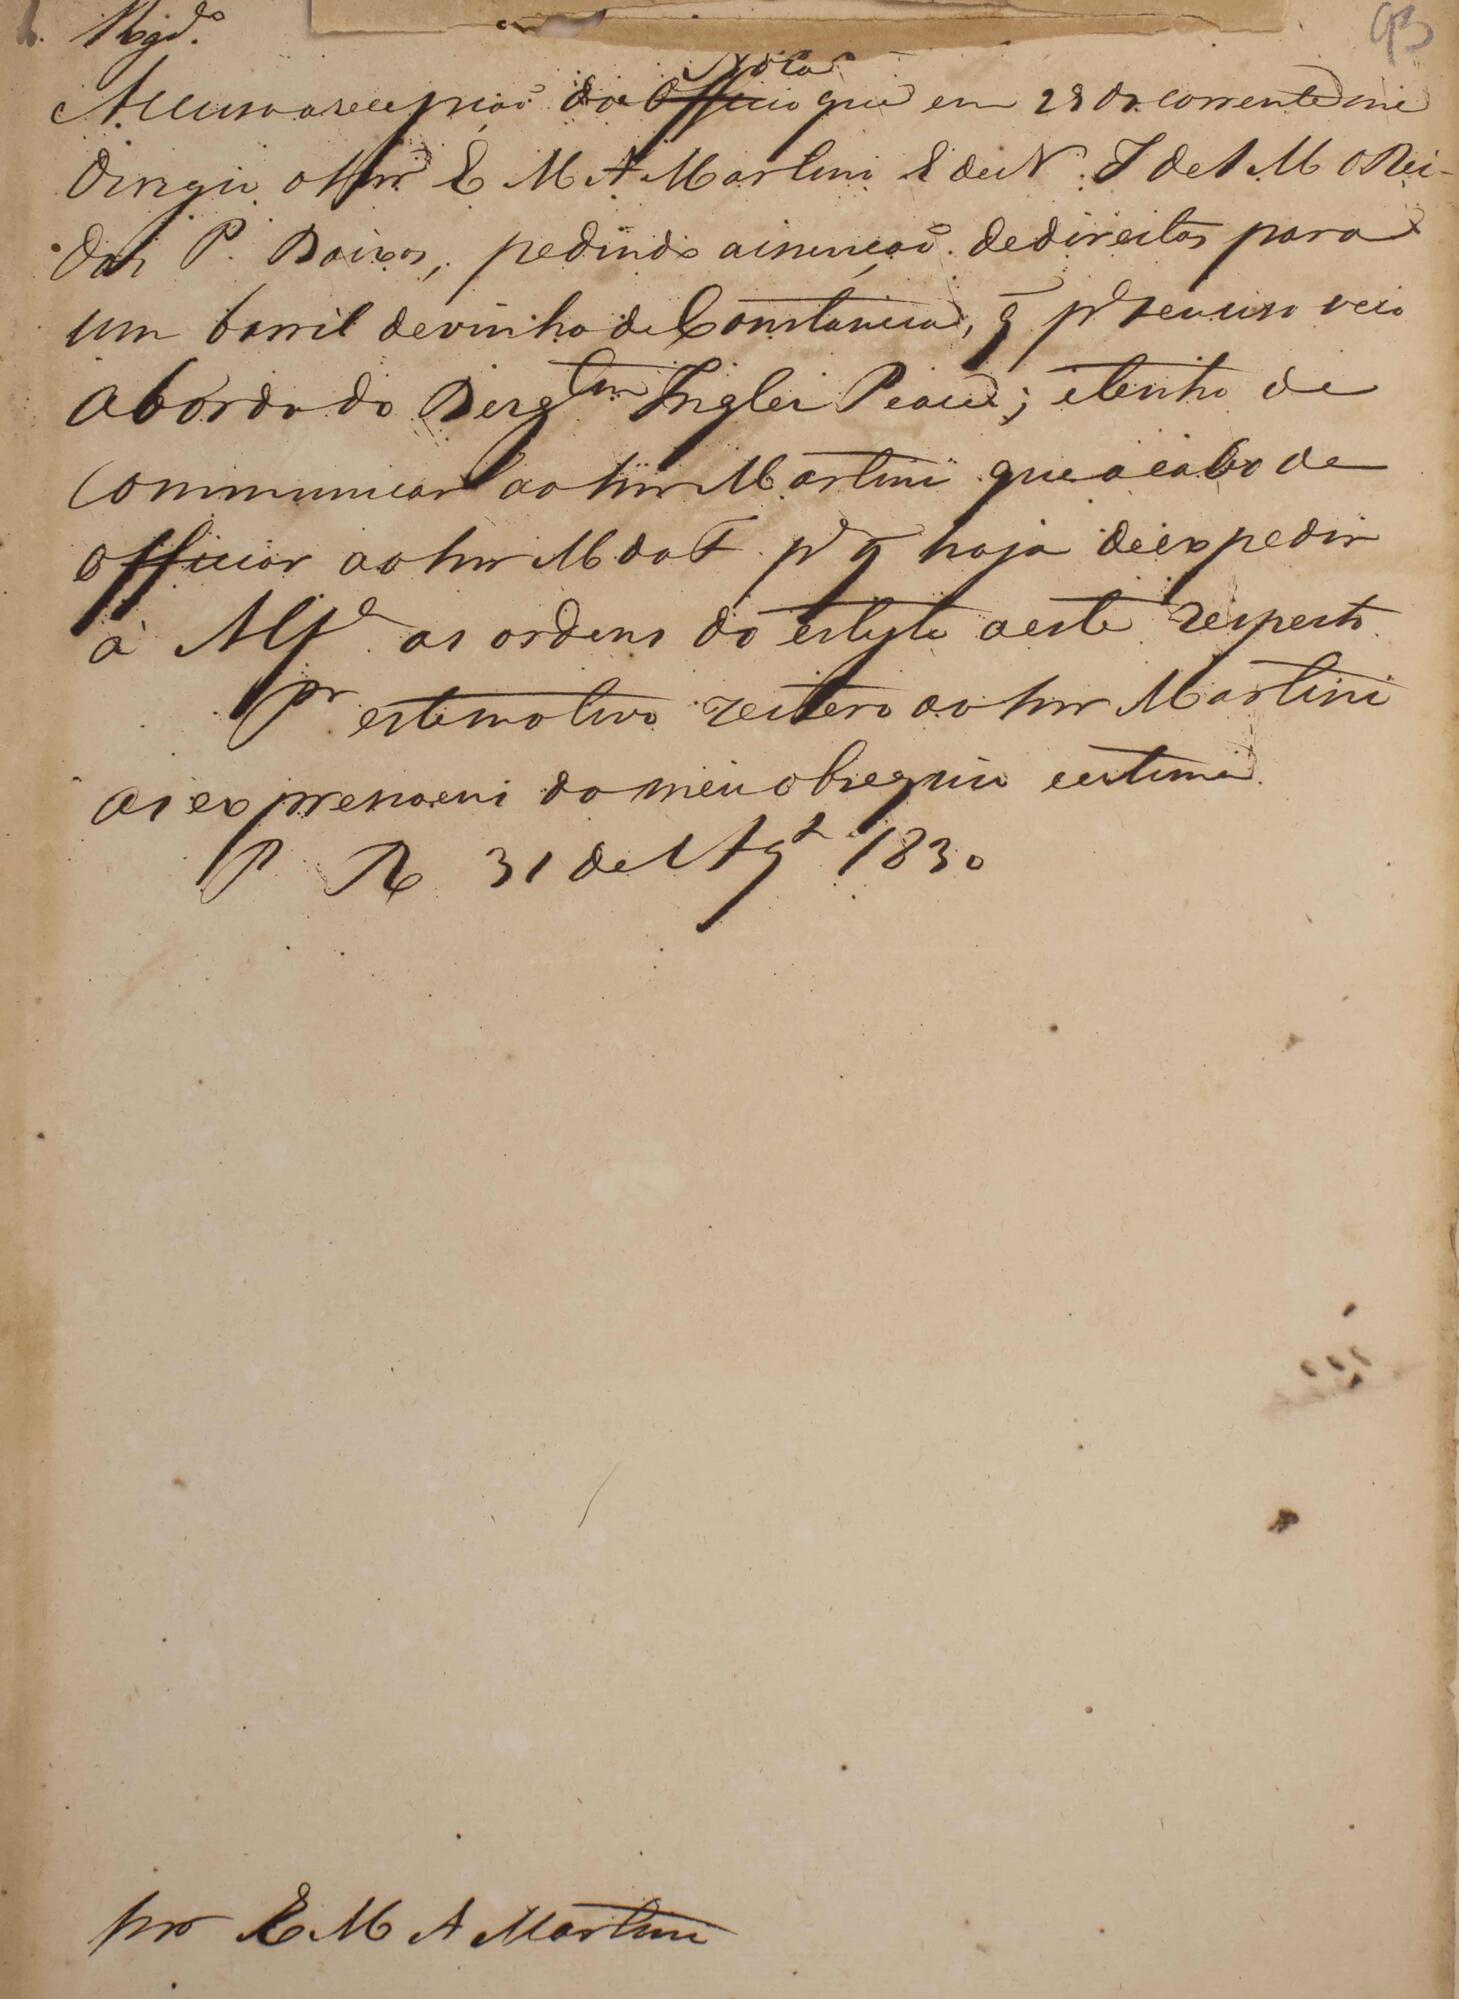 Rgdo. 93
Nota
Accuso a recepção da Officio que em 28 do corrente me
dirigiu o Snr E M A Martini E de N. I de S M O Rei
dos P. Baixos, pedindo a isenção de direitos para
um barril de vinho de Constancia, q̃ pr acaso veio
a bordo do Bergtim Inglez Peace; e tenho de
Communicar ao Snr Martini que acabo de
Officiar ao Snr M da F. pa q̃ haja de expedir
à Alfa as ordens do estylo a este respeito.
Pr este motivo reitero ao Snr Martini
as expressoens do meu obsequio e estima.
P R 31 de Agto 1830
Snr E M A Martini